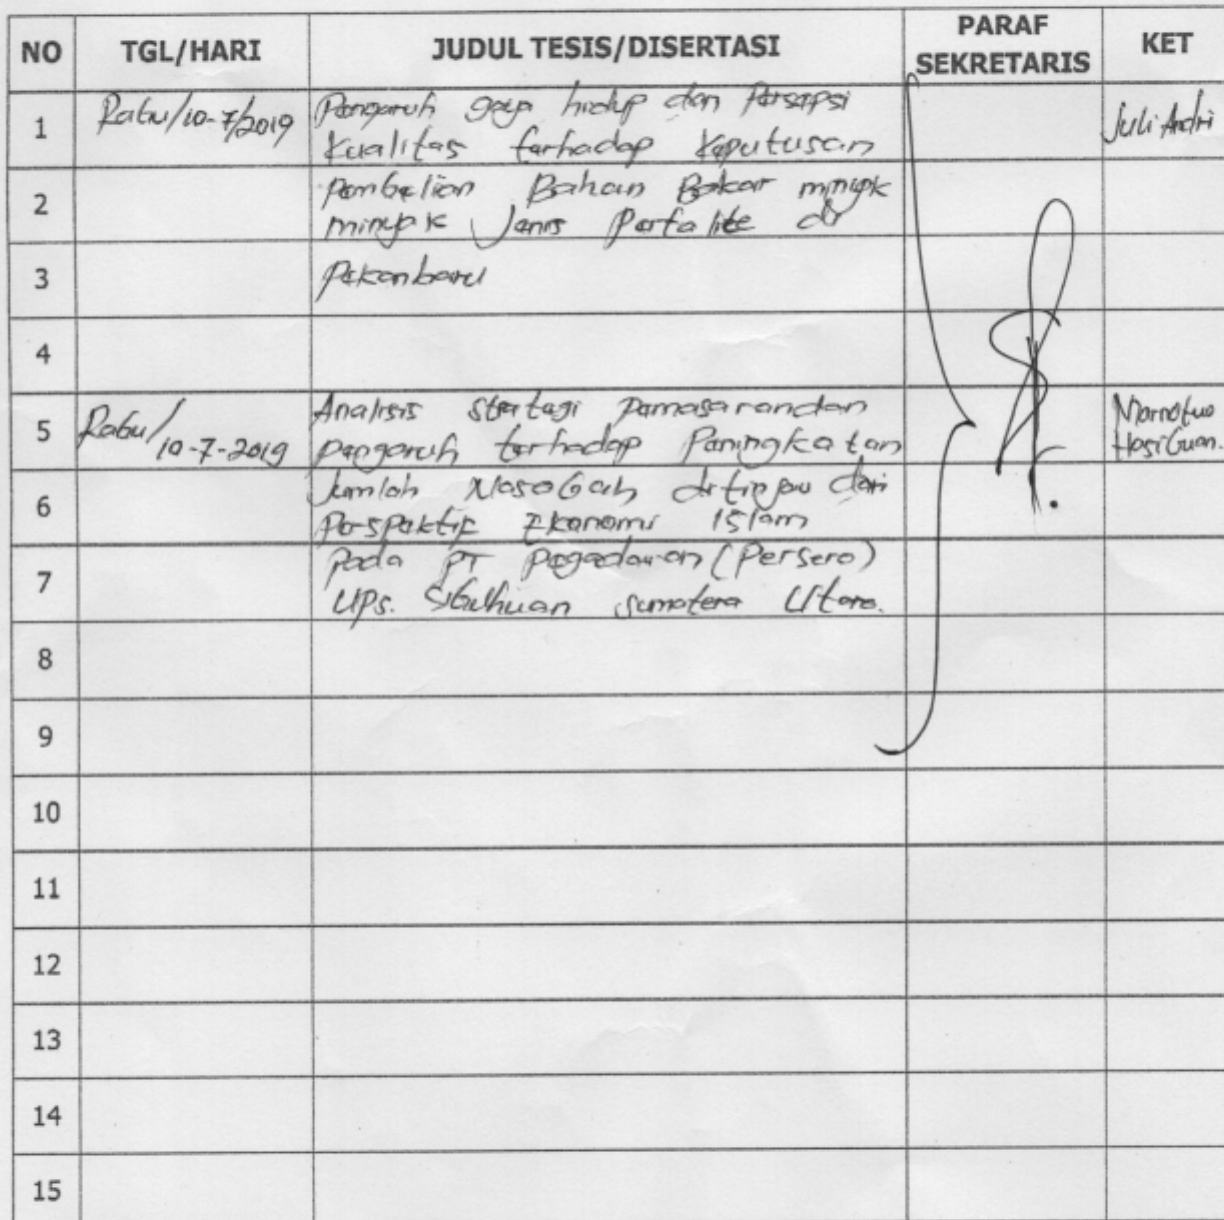 NO TGL/HARI JUDUL TESIS/DISERTASI PARAF SEKRETARIS KET
1 Rabu/10-7/2019 Pengaruh gaya hidup dan Persepsi Juli Andri
Kualitas terhadap Keputusan
2 pembelian Bahan Bakar minyak
minyak Jenis Pertalite di
3 Pekanbaru
4
5 Rabu/10-7-2019 Analisis strategi pemasaran dan Marnotua Hasibuan.
pengaruh terhadap Peningkatan
6 Jumlah Nasabah ditinjau dari
Perspektif Ekonomi Islam
7 pada PT pegadaian (Persero)
UPs. Sibuhuan sumatera Utara.
8
9
10
11
12
13
14
15